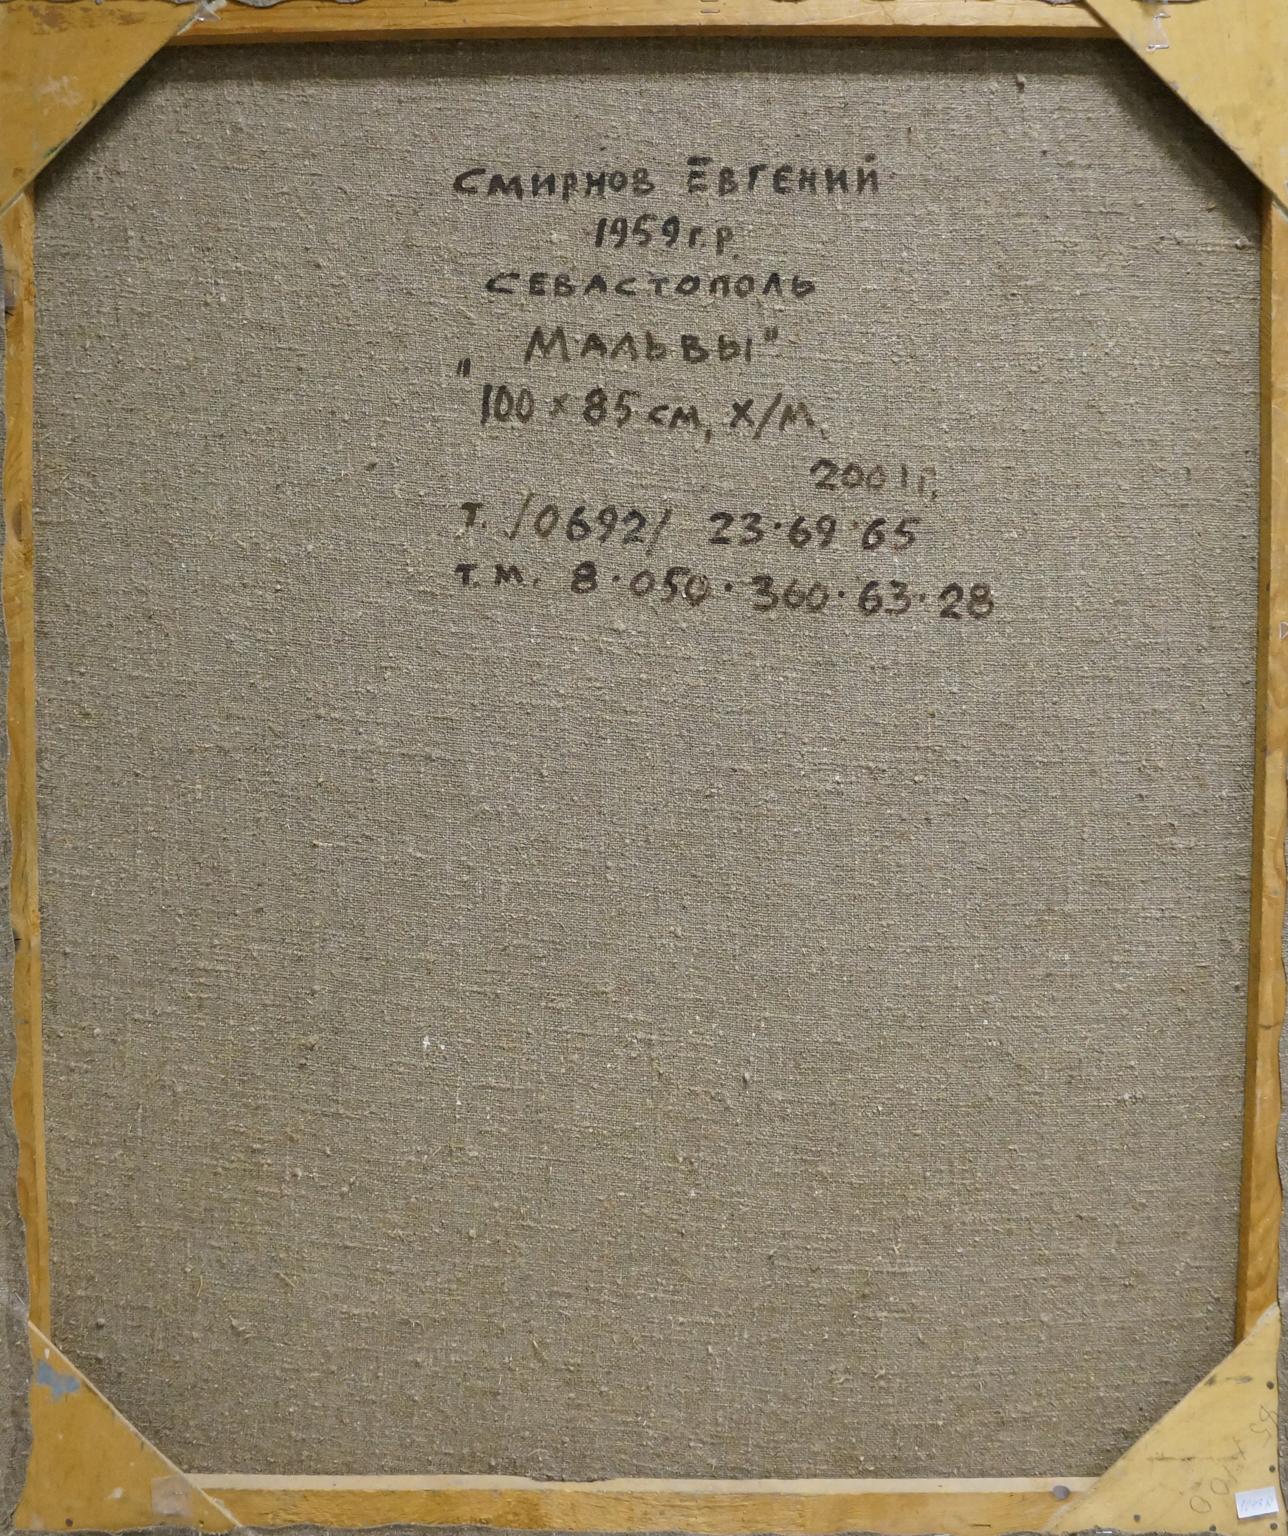 СМИРНОВ ЕВГЕНИЙ
1959 г.р.
СЕВАСТОПОЛЬ
"МАЛЬВЫ"
100 × 85 см, х/м.
2001 г.
т. /0692/ 23·69·65
т.м. 8·050·360·63·28
85
100